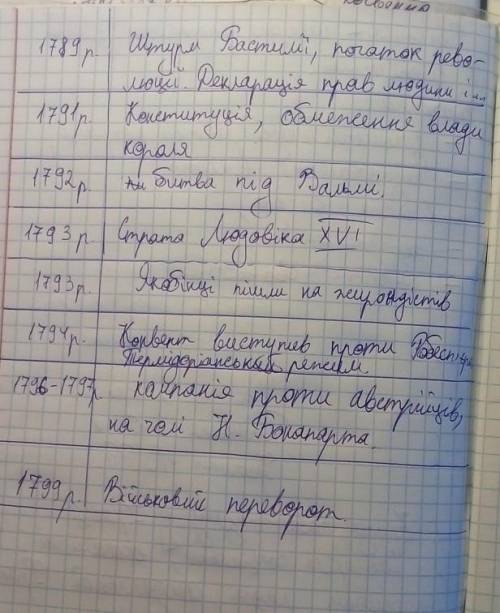 1789р. Штурм Бастилії, початок рево-
люції. Декларація прав людини і
1791р. Конституція, обмеження влади
короля
1792р. битва під Вальмі.
1793р. Страта Людовіка XVI
1793р. Якобінці пішли на жирондістів
1794р. Конвент виступив проти Робесп'єра
Термідоріанський режим.
1796-1797р. кампанія проти австрійців,
на чолі Н. Бонапарта.
1799р. Військовий переворот.